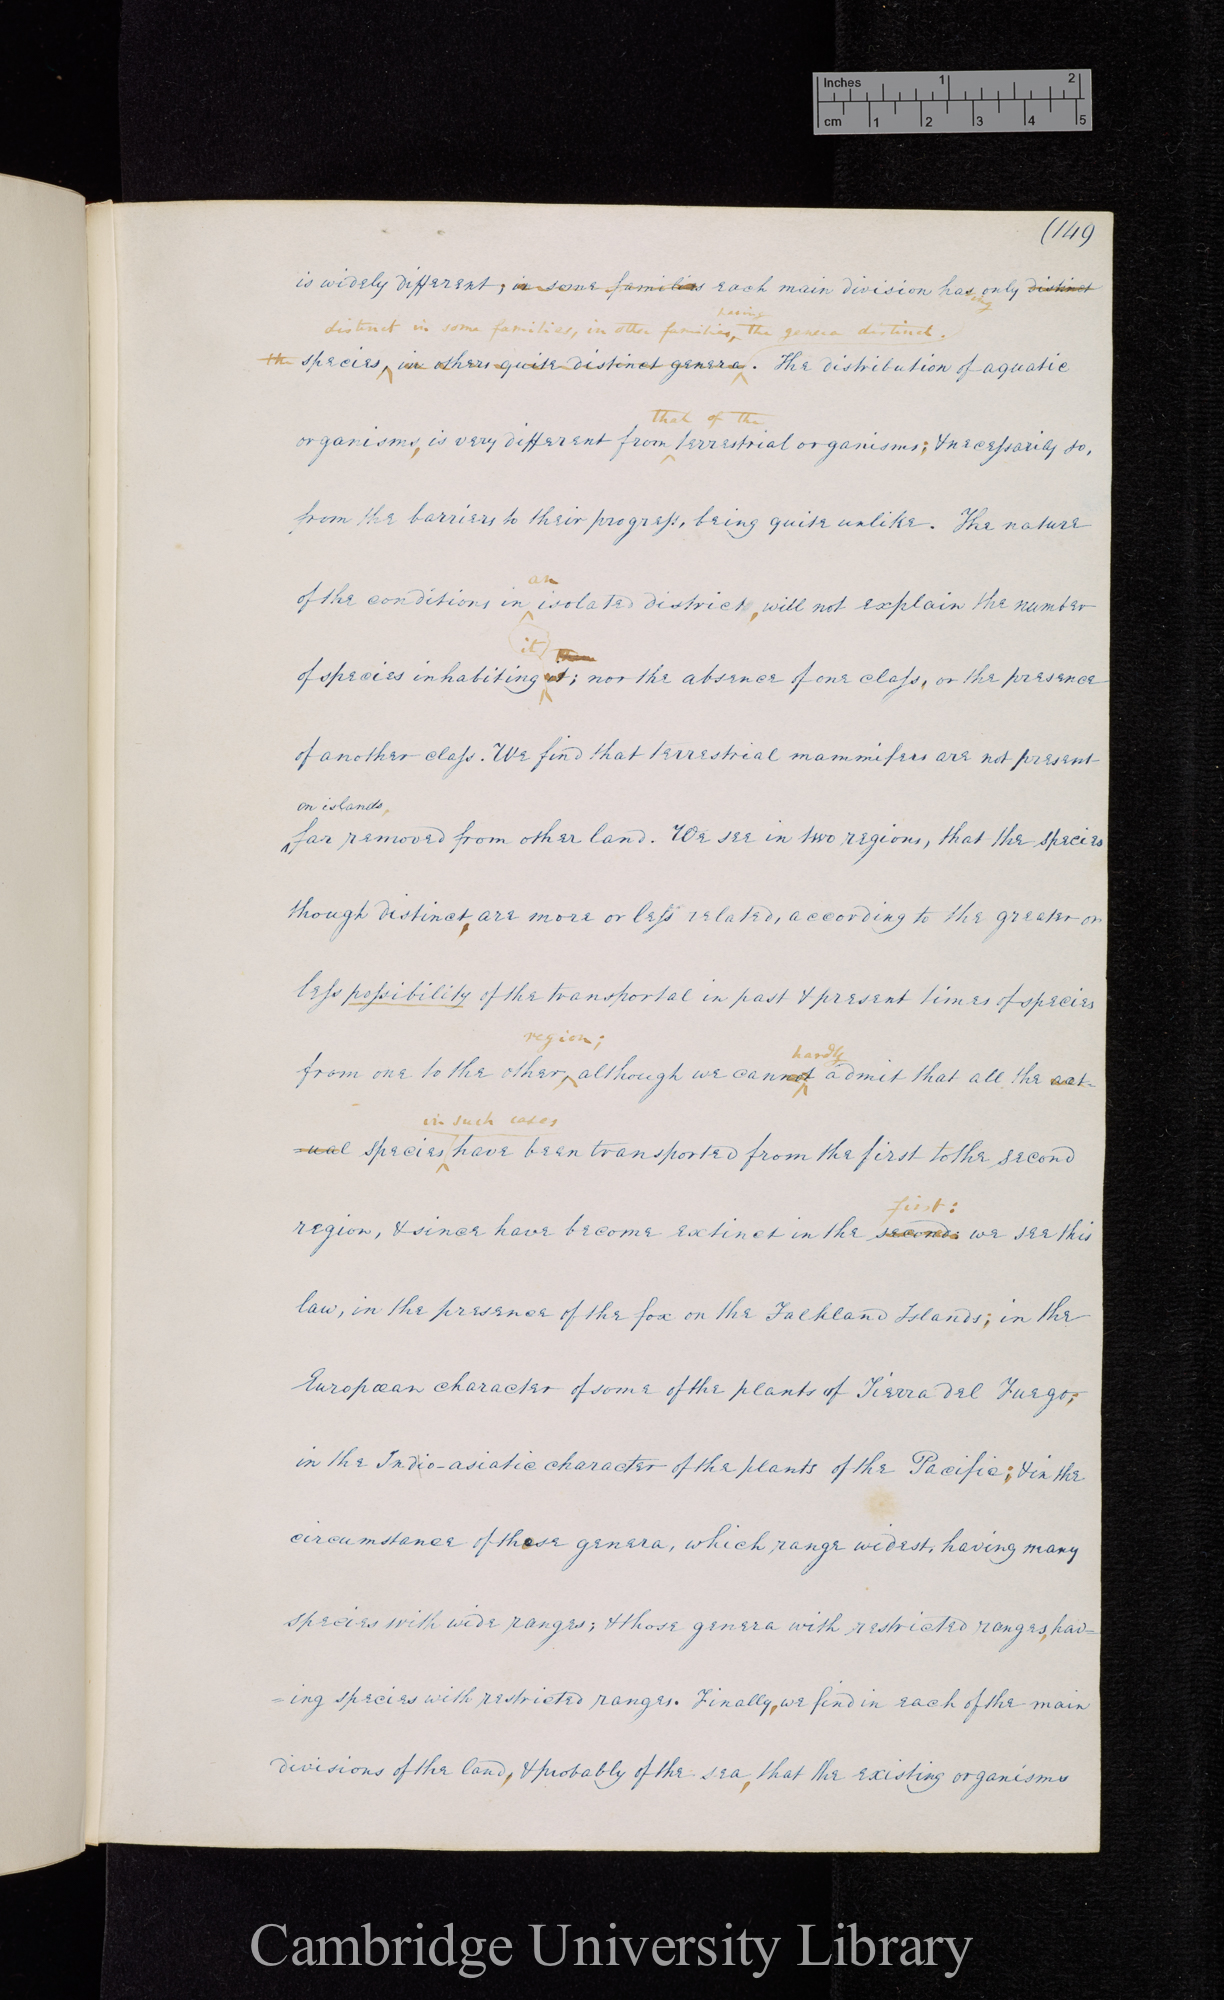 Inches 1 2
cm 1 2 3 4 5
(149
is widely different; in some families each main division has only distinct
being
distinct in some families, in other families, the genera distinct.
the species, in others quite distinct genera. The distribution of aquatic
that of the
organisms, is very different from terrestrial organisms; & necessarily so,
from the barriers to their progress, being quite unlike. The nature
an
of the conditions in isolated district, will not explain the number
it them
of species inhabiting it; nor the absence of one class, or the presence
of another class. We find that terrestrial mammifers are not present
on islands,
far removed from other land. We see in two regions, that the species
though distinct, are more or less related, according to the greater or
less possibility of the transportal in past & present times of species
region;
hardly
from one to the other, although we cannot admit that all the act-
in such cases
=ual species have been transported from the first to the second
first:
region, & since have become extinct in the second: we see this
law, in the presence of the fox on the Falkland Islands; in the
Europæan character of some of the plants of Tierra del Fuego;
in the Indio-asiatic character of the plants of the Pacific; & in the
circumstance of those genera, which range widest, having many
species with wide ranges; & those genera with restricted ranges, hav=
=ing species with restricted ranges. Finally, we find in each of the main
divisions of the land, & probably of the sea, that the existing organisms
Cambridge University Library